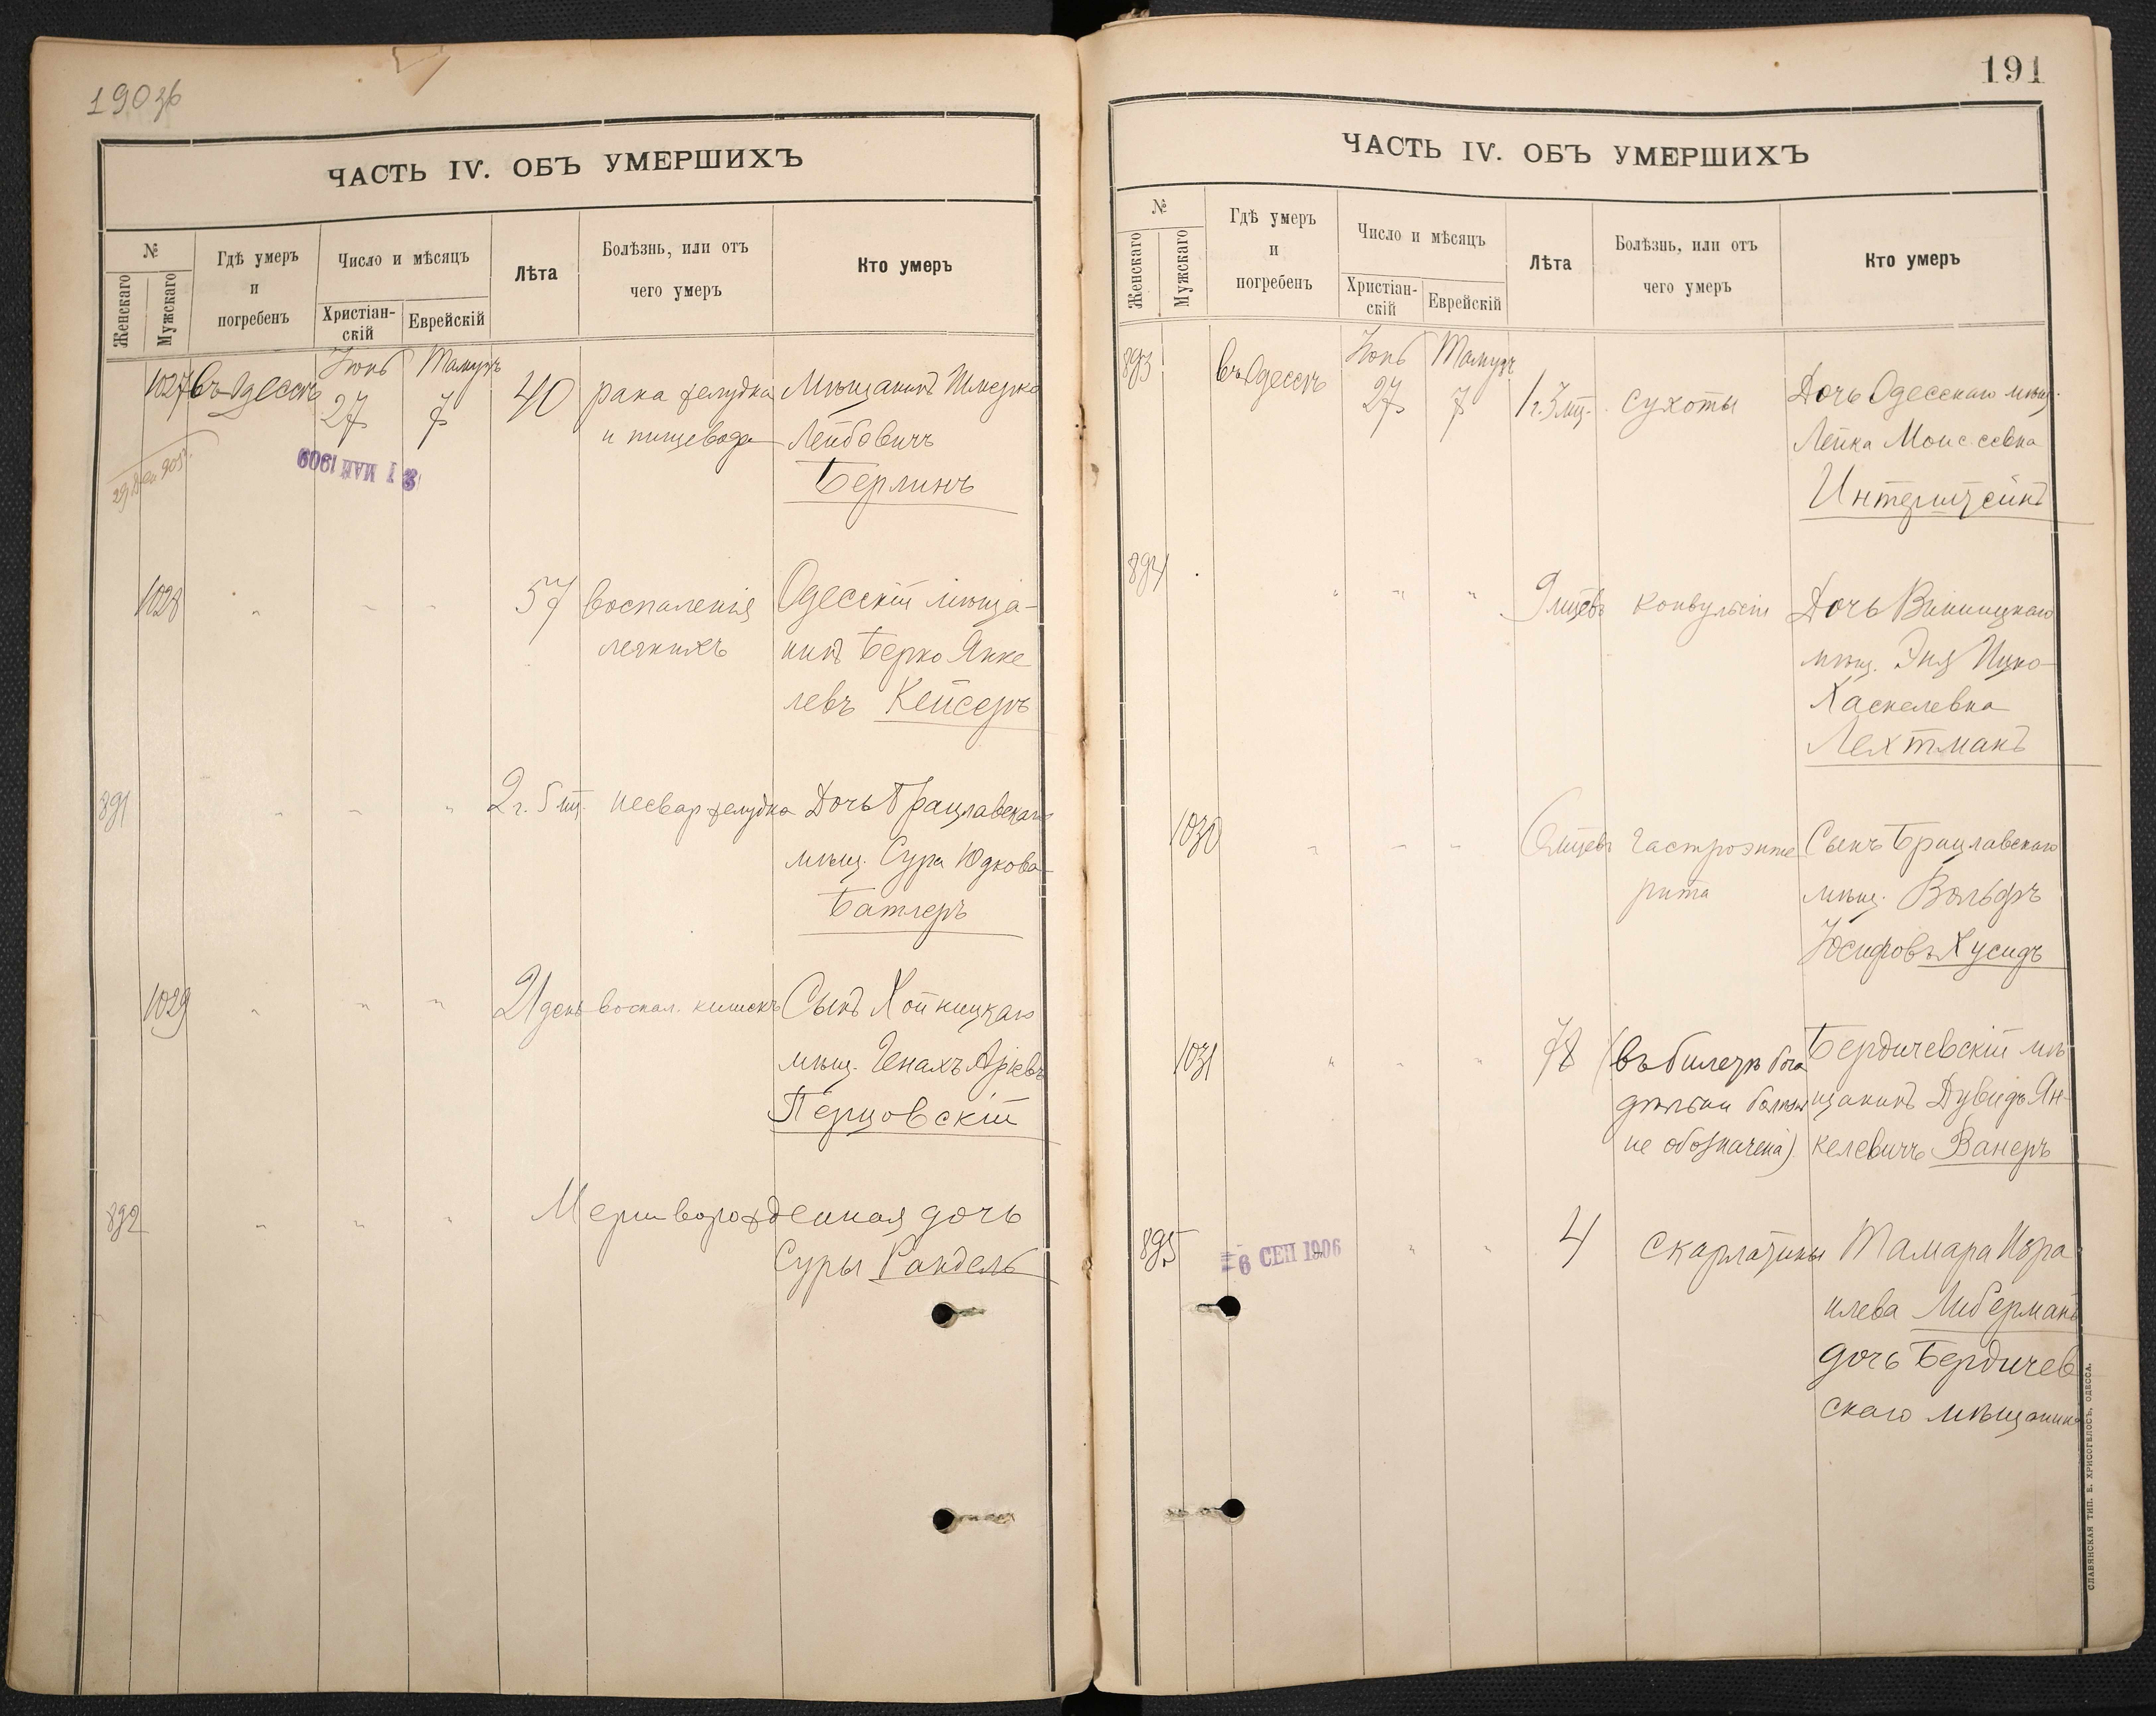 190 зб
ЧАСТЬ IV. ОБЪ УМЕРШИХЪ
№
Женскаго
Мужскаго
Гдѣ умеръ
и
погребенъ
Число и мѣсяцъ
Христіан-
скій
Еврейскій
Лѣта
Болѣзнь, или отъ
чего умеръ
Кто умеръ
1027 Въ Одессѣ Іюнь 27 Тамузъ 7 40 рака желудка Мѣщанинъ Шмерко
и пищевода Лейбовичъ
Берлинъ
31 МАЯ 1909
1028 " " " 57 воспаленія Одесскій мѣща-
легкихъ нинъ Берко Янке
левъ Кейсеръ
891 " " " 2 г. 5 мц. несвар желудка Дочь Брацлавскаго
мѣщ. Сура Юдкова
Батлеръ
1029 " " " 21 день воспал. кишекъ Сынъ Хойницкаго
мѣщ. Генахъ Арьевъ
Перцовскій
892 " " " Мертворожденная дочь
Суры Рандель
191
ЧАСТЬ IV. ОБЪ УМЕРШИХЪ
№
Женскаго
Мужскаго
Гдѣ умеръ
и
погребенъ
Число и мѣсяцъ
Христіан-
скій
Еврейскій
Лѣта
Болѣзнь, или отъ
чего умеръ
Кто умеръ
893 Въ Одессѣ Іюнь 27 Тамузъ 7 1 г. 3 мц. сухоты Дочь Одесскаго мѣщ.
Лейка Моисеевна
Интерштейнъ
894 " " " 9 мцевъ конвульсіи Дочь Винницкаго
мѣщ. Эня Ицко-
Хаскелевна
Лехтманъ
1030 " " " 6 мцевъ гастроэнте Сынъ Брацлавскаго
рита мѣщ. Вольфъ
Юсифовъ Хусидъ
1031 " " " 78 (въ билетѣ бога Бердичевскій мѣ
дѣльни болѣзнь щанинъ Дувидъ Ян-
не обозначена) келевичъ Ванеръ
895 6 СЕН 1906 " " " 4 скарлатины Тамара Изра
илева Либерманъ
дочь Бердичев
скаго мѣщанина
СЛАВЯНСКАЯ ТИП. Е. ХРИСОГЕЛОСЪ, ОДЕССА.